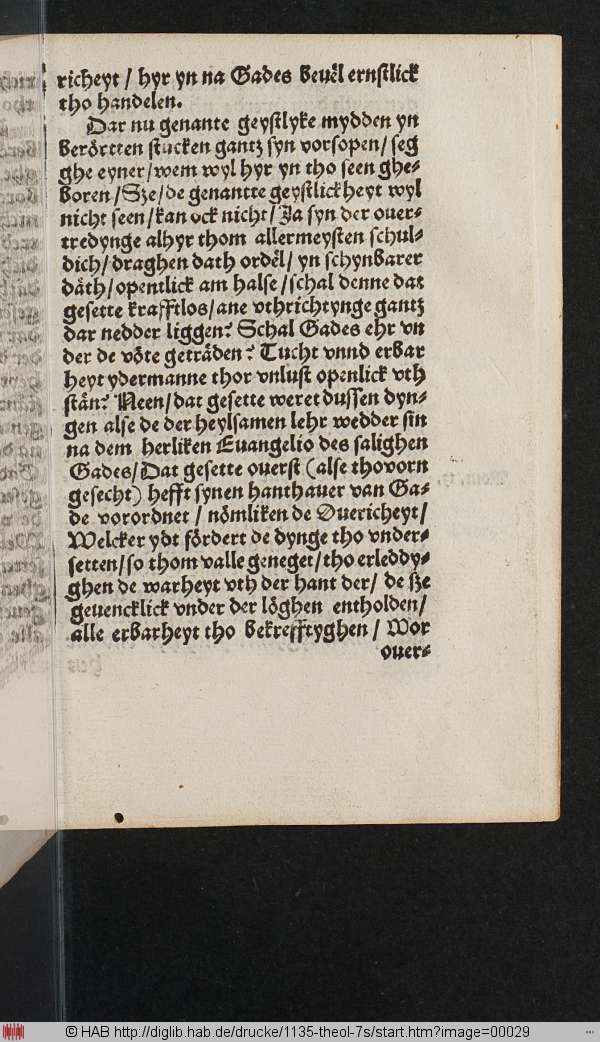 richeyt / hyr yn na Gades beuel ernstlick
tho handelen.
Dar nu genante geystlyke mydden yn
berörtten stucken gantz syn vorsopen / seg
ghe eyner / wem wyl hyr yn tho seen ghe-
boren / Sze / de genantte geystlickheyt wyl
nicht seen / kan ock nicht / Ja syn der ouer-
tredynge alhyr thom allermeysten schul-
dich / draghen dath ordel / yn schynbarer
däth / opentlick am halse / schal denne dat
gesette krafftlos / ane vthrichtynge gantz
dar nedder liggen? Schal Gades ehr vn
der de vöte geträden? Tucht vnnd erbar
heyt ydermanne thor vnlust openlick vth
stän? Neen / dat gesette weret dussen dyn-
gen alse de der heylsamen lehr wedder sin
na dem herliken Euangelio des salighen
Gades / Dat gesette ouerst (alse thovorn
gesecht) hefft synen hanthauer van Ga-
de vorordnet / nömliken de Ouericheyt /
Welcker ydt fördert de dynge tho vnder-
setten / so thom valle geneget / tho erleddy-
ghen de warheyt vth der hant der / de sze
geuencklick vnder der löghen entholden /
alle erbarheyt tho bekrefftyghen / Wor
ouer-
© HAB http://diglib.hab.de/drucke/1135-theol-7s/start.htm?image=00029